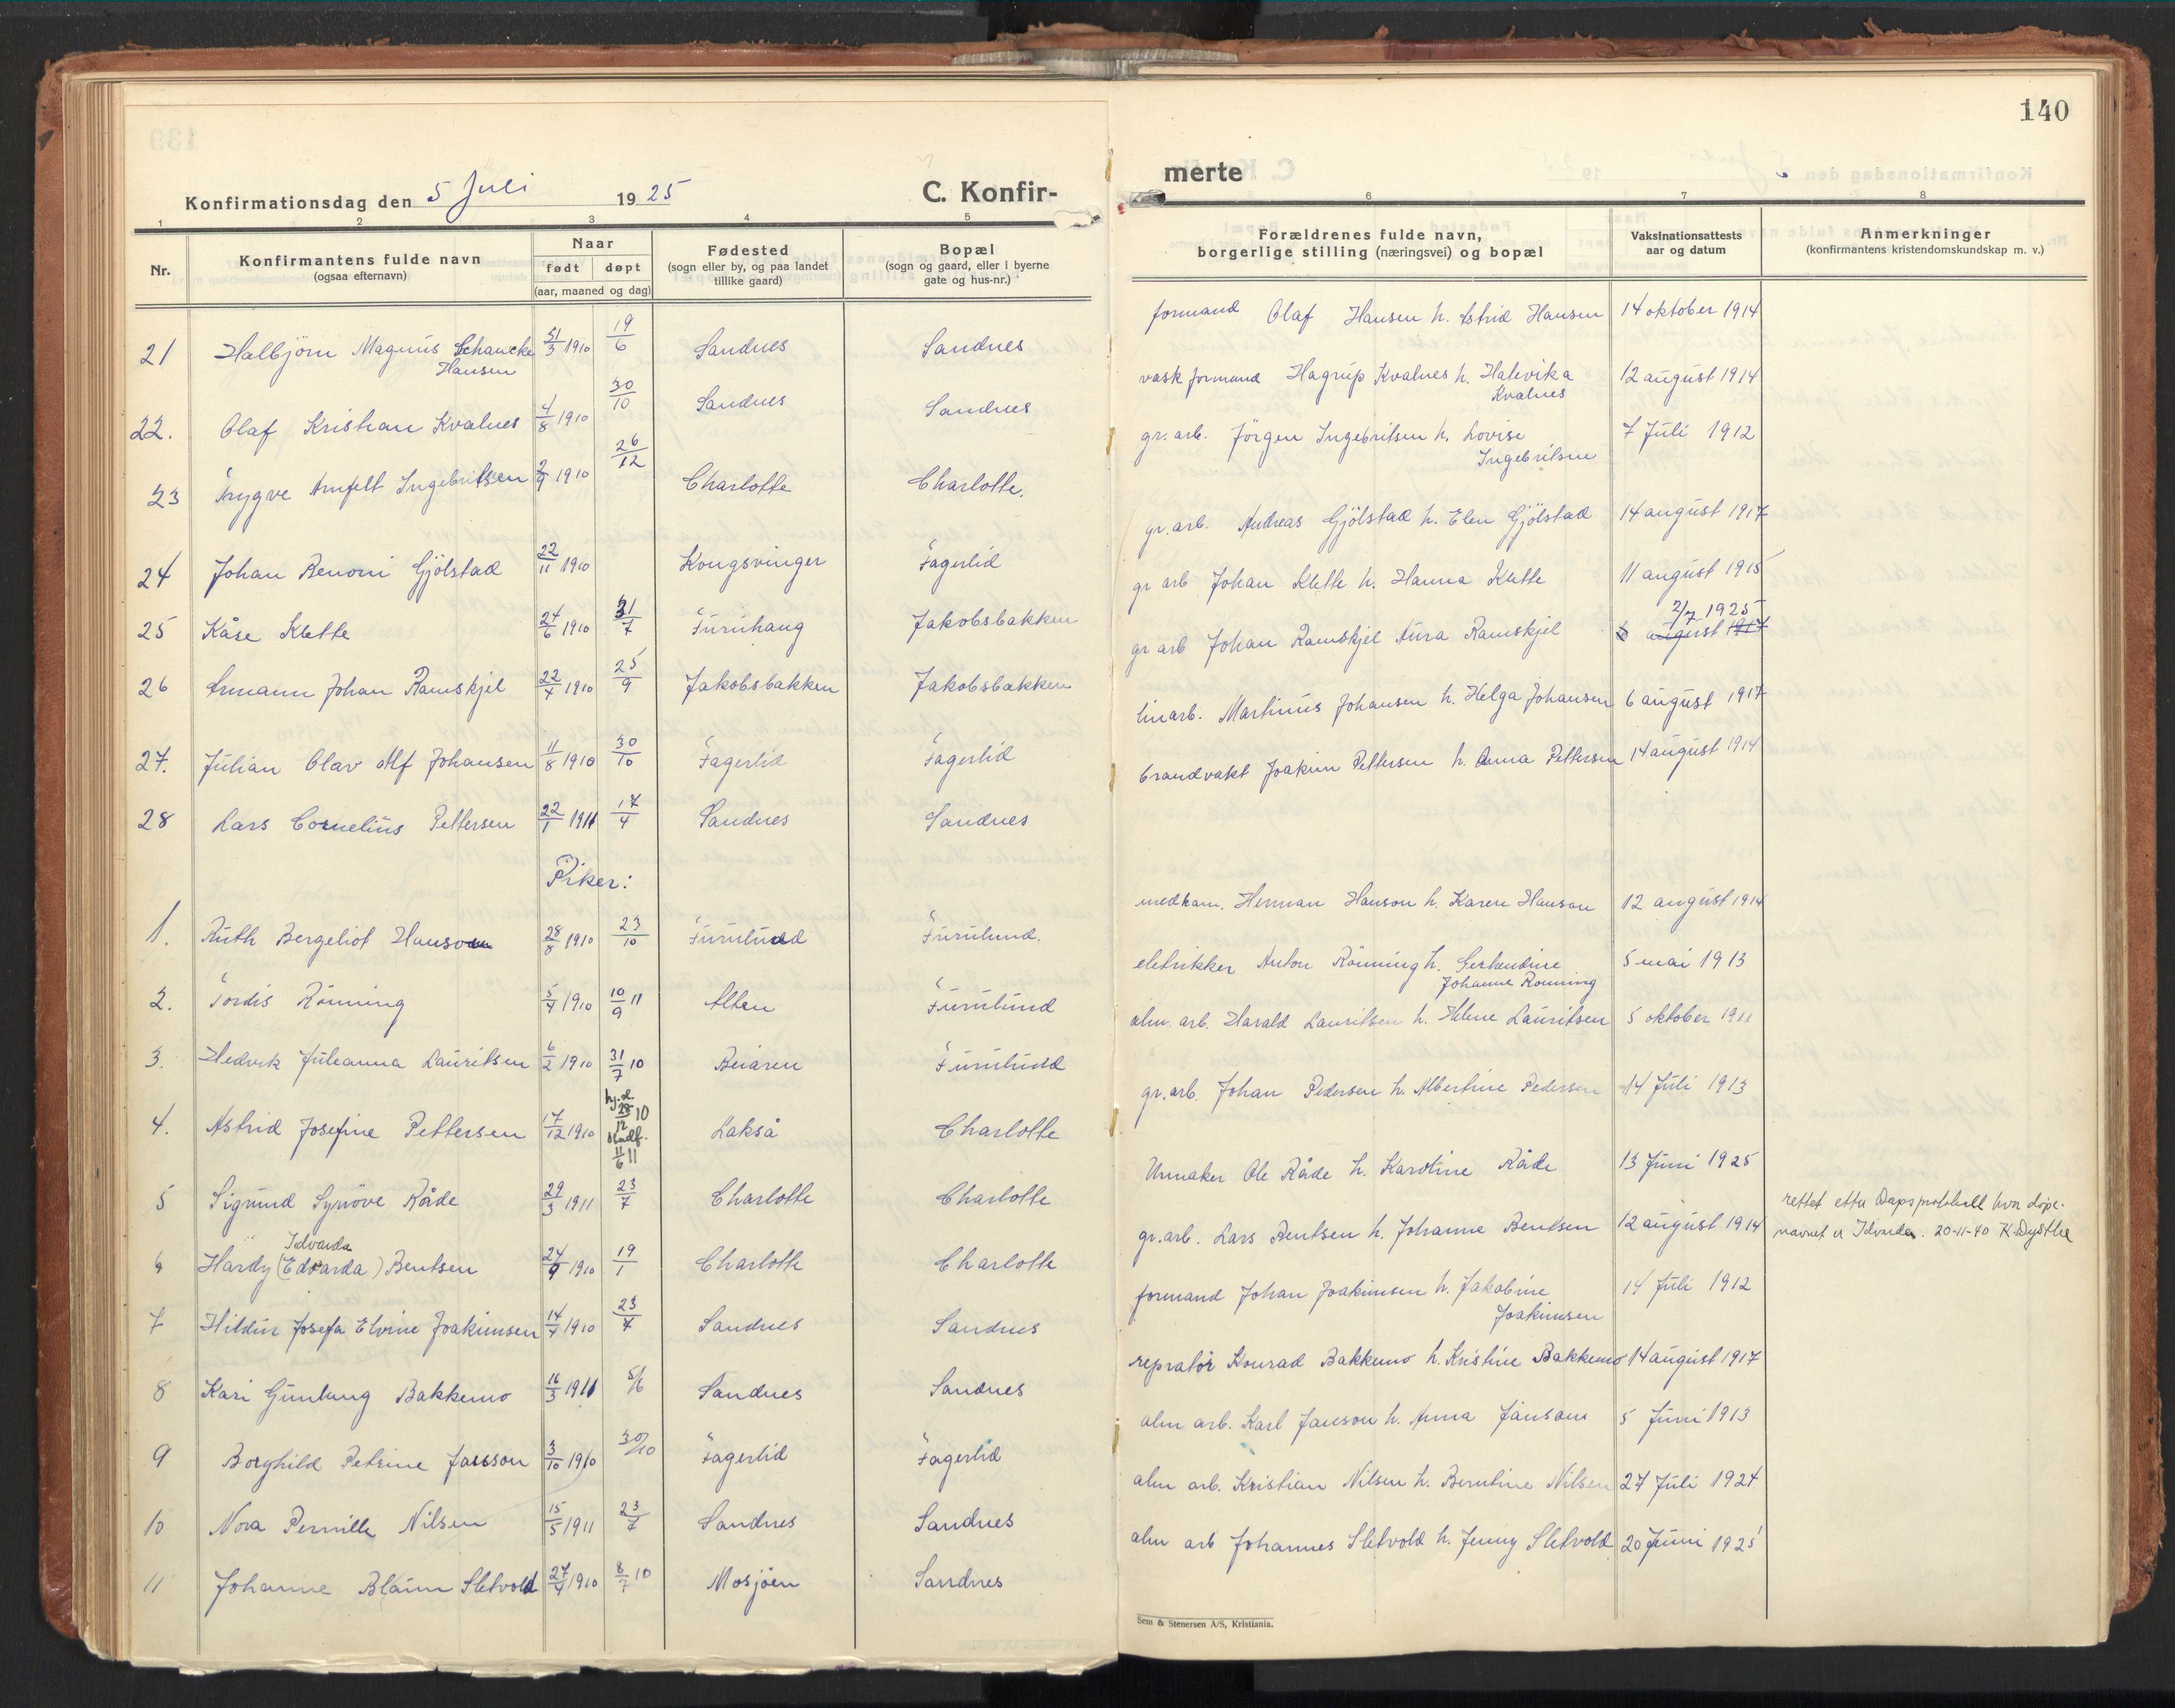 140
Konfirmationsdag den 5 Juli 1925 C. Konfir-
merte
1 2 3 4 5 6 7 8
Nr. Konfirmantens fulde navn (ogsaa efternavn)
Naar født døpt (aar, maaned og dag)
Fødested (sogn eller by, og paa landet tillike gaard)
Bopæl (sogn og gaard, eller i byerne gate og hus-nr.)
Forældrenes fulde navn, borgerlige stilling (næringsvei) og bopæl
Vaksinationsattests aar og datum
Anmerkninger (konfirmantens kristendomskundskap m. v.)
21 Halbjörn Magnus Schancke Hansen 31/3 1910 19/6 Sandnes Sandnes formand Olaf Hansen h. Astrid Hansen 14 oktober 1914
22. Olaf Kristian Kvalnes 4/8 1910 30/10 Sandnes Sandnes vask formand Hagrup Kvalnes h. Halevika Kvalnes 12 august 1914
23 Trygve Arnfelt Ingebritsen 2/9 1910 26/12 Charlotte Charlotte. gr. arb. Jörgen Ingebritsen h. Lovise Ingebritsne 7 Juli 1912
24 Johan Benoni Gjölstad 22/11 1910 Kongsvinger Fagerlid gr. arb. Andreas Gjölstad h. Elen Gjölstad 14 august 1917
25 Kåre Klette 24/6 1910 31/7 Furuhaug Jakobsbakken gr arb Johan Klette h. Hanna Klette 11 august 1915
26 Armann Johan Ramskjel 22/4 1910 25/9 Jakobsbakken Jakobsbakken gr arb Johan Ramskjel Aura Ramskjel 2/7 1925 6 august 1917
27. Julian Olav Alf Johansen 11/8 1910 30/10 Fagerlid Fagerlid linarb. Martinus Johansen h. Helga Johansen 6 august 1917
28 Lars Cornelius Pettersen 22/1 1911 17/4 Sandnes Sandnes brandvakt Joakim Pettersen h. Anna Pettersen 14 august 1914
Piker:
1. Ruth Bergeliot Hanson 28/8 1910 23/10 Furulund Furulund. medham. Herman Hanson h. Karen Hanson 12 august 1914
2. Tordis Rönning 5/4 1910 10/9 11 Alten Furulund eletrikker Anton Rönning h. Johanne Rönning 5 mai 1913
3. Hedvik Juleanna Lauritsen 6/2 1910 31/7 10 Beiaren Furulund alm. arb. Harald Lauritsen h. Helene Lauritsen 5 oktober 1911
4. Astrid Josefine Pettersen 17/12 1910 hj.d. 28/12 10 stadf. 11/6 11 Lakså Charlotte gr. arb. Johan Pedersen h. Albertine Pedersen 14 Juli 1913
5 Sigrund Synöve Råde 29/3 1911 23/7 Charlotte Charlotte Urmaker Ole Råde h. Karoline Råde 13 Juni 1925
6 Hardy (Edvarda) Idvarda Bentsen 24/9 1910 19/1 Charlotte Charlotte gr. arb. Lars Bentsen h. Johanne Bentsen 12 august 1914 rettet etter Dapsprotokoll hvor döpe-
navnet er Idvarda. 20-11-40 K. Dysthe
7 Hildur Josefa Elvine Joakimsen 14/4 1910 23/7 Sandnes Sandnes formand Johan Joakimsen h. Jakobine Joakimsen 14 Juli 1912
8 Kari Gunlaug Bakkemo 16/3 1911 5/6 Sandnes Sandnes repratör Konrad Bakkemo h. Kristine Bakkemo 14 august 1917
9 Borghild Petrine Janson 3/10 1910 30/10 Fagerlid Fagerlid alm arb. Karl Janson h. Anna Janson 5 Juni 1913
10 Nora Pernille Nilsen 15/5 1911 23/7 Sandnes Sandnes alm arb. Kristian Nilsen h. Berntine Nilsen 27 Juli 1924
11 Johanne Sletvold 27/4 1910 8/7 10 Mosjöen Sandnes alm arb Johannes Sletvold h. Jenny Sletvold 20 Juni 1925
Sem & Stenersen A/S, Kristiania.